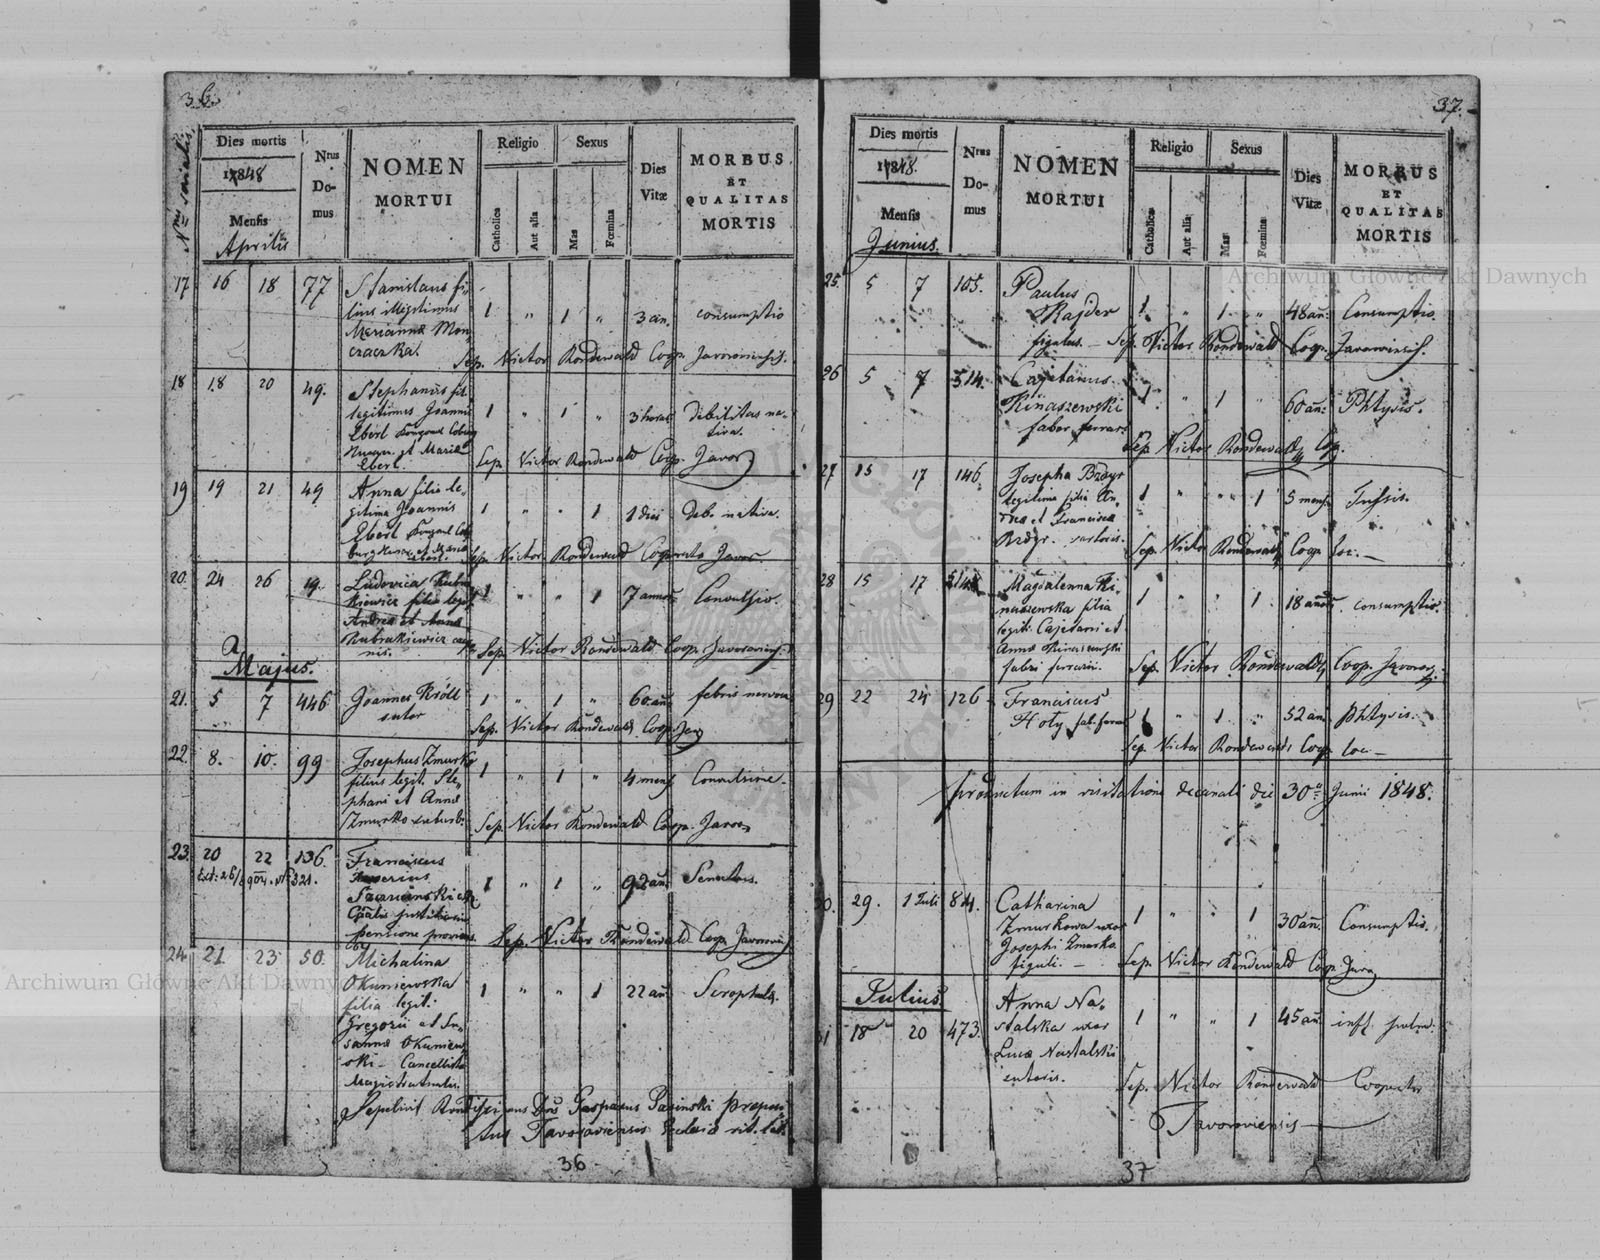 36.
Nrus serialis
Dies mortis
1848
Mensis
Aprilis
Nrus Do-mus
NOMEN
MORTUI
Religio
Catholica
Aut alia
Sexus
Mas
Fœmina
Dies
Vitæ
MORBUS
ET
QUALITAS
MORTIS
17 16 18 77 Stanislaus fi-
lius illegitimus 1 " 1 " 3 an. consumptio
Marianna Mon-
czaczka.
Sep. Victor Rondewald Coop. Javoroviensis.
18 18 20 49. Stephanus fil.
legitimus Joannis 1 " 1 " 3 horas Debilitas na-
Ebert
tiva.
et Maria
Ebert.
Sep. Victor Rondewald Coop. Javor
19 19 21 49 Anna filia le-
gitima Joannis 1 " " 1 1 diei Deb. nativa.
Ebert
Sep. Victor Rondewald Cooperator Javor.
20. 24 26 19. Ludovica
filia legit. 1 " " 1 7 annos Convulsio.
Andrea et Anna
Rubrakiewicz
Sep. Victor Rondewald Coop. Javoroviens.
Majus.
21. 5 7 446 Joannes Króll 1 " 1 " 60 an. febris nervosa
sutor
Sep. Victor Rondewald. Coop.
22. 8. 10. 99 Josephus Zmurko
filius legit. Ste- 1 " 1 " 4 mens. Convulsione.
phani et Anna
Zmurko suburb.
Sep. Victor Rondewald Coop. Javor
23. 20 22 136. Franciscus
1 " 1 " 92 an. Senectus.
Sep. Victor Rondewald Coop. Javorov
24 21 23 50. Michalina
Okuniewska 1 " " 1 22 an. Scrophula.
filia legit.
Gregorii et Su-
sanna Okuniew-
ski Cancellista
Magistratualis.
Sepelivit Dnus Gasparus Pasinski Preposi
tus Javoroviensis Ecclesiæ rit. lat.
36
37.
Dies mortis
1848.
Mensis
Junius.
Nrus
Do-
mus
NOMEN
MORTUI
Religio
Catholica
Aut alia
Sexus
Mas
Fœmina
Dies
Vitæ
MORBUS
ET
QUALITAS
MORTIS
25. 5 7 105. Paulus
Rajder 1 " 1 " 48 an: Consumptio.
figulus. Sep. Victor Rondewald Coop. Javoroviensis.
26 5 7 514. Cajetanus
Kinaszewski 1 " 1 " 60 an: Phtysis.
faber ferrar.
Sep. Victor Rondewald Coop.
27 15 17 146. Josepha Brdyr
legitima filia An- 1 " " 1 5 mens.
drea et Francisca
Brdyr. sartoris. Sep. Victor Rondewald Coop. loc.
28 15 17 Magdalenna Ki-
naszewska filia 1 " " 1 18 annos. consumptio.
legit. Cajetani et
Anna Kinaszewski
fabri ferrarii. Sep. Victor Rondewald Coop. Javorov.
29 22 24 126 Franciscus
Hoły fab. ferrar. 1 " 1 " 52 an. phtysis.
Sep. Victor Rondewald Coop. loc
productum in visitatione decanali die 30a Junii 1848.
30. 29. 1 Juli 84. Catharina
Zmurkowa uxor 1 " " 1 30 an. Consumptio.
Josephi Zmurko
figuli. Sep. Victor Rondewald Coop. Javor
Julius.
31 18 20 473. Anna Na-
stalska uxor 1 " " 1 45 an. infl. pulm.
Luca Nastalski
sutoris.
Sep. Victor Rondewald Cooperator
Javoroviensis
37
Archiwum Główne Akt Dawnych
Archiwum Główne Akt Dawnych